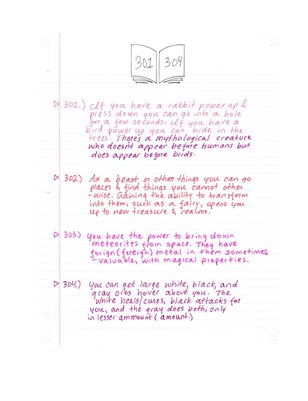 301 304
▷ 301.) If you have a rabbit power up &
press down you can go into a hole
for a few seconds. If you have a
bird power up you can hide in the
trees. There's a mythological creature
who doesn't appear before humans but
does appear before birds.
▷ 302.) As a beast or other things you can go
places & find things you cannot other
-wise. Gaining the ability to transform
into them, such as a fairy, opens you
up to new treasure & realms.
▷ 303.) You have the power to bring down
meteorites from space. They have
forign (foreign) metal in them sometimes
-valuable, with magical properties.
▷ 304.) You can get large white, black, and
gray orbs hover above you. The
white heals/cures, black attacks for
you, and the gray does both, only
in lesser ammount (amount.)